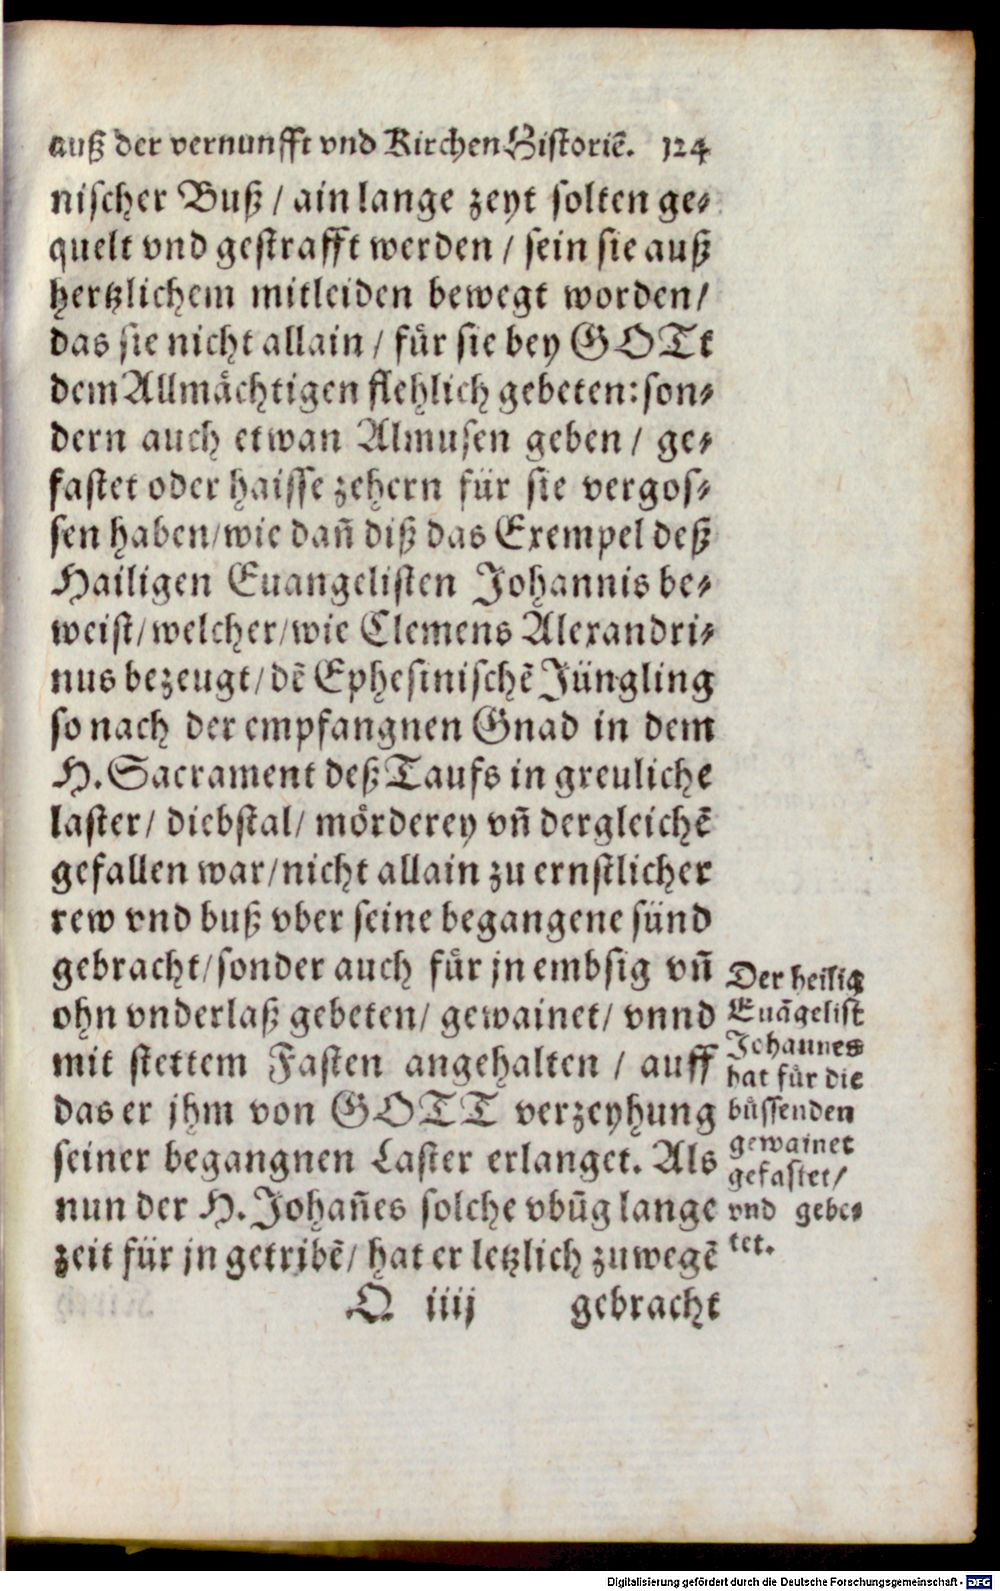 auß der vernunfft vnd Kirchen Historiẽ. 124
nischer Buß / ain lange zeyt solten ge⸗
quelt vnd gestrafft werden / sein sie auß
hertzlichem mitleiden bewegt worden/
das sie nicht allain / fuͤr sie bey GOTt
dem Allmaͤchtigen flehlich gebeten: son⸗
dern auch etwan Almusen geben / ge⸗
fastet oder haisse zehern für sie vergos⸗
sen haben/wie dañ diß das Exempel deß
Hailigen Euangelisten Johannis be⸗
weist/welcher/wie Clemens Alexandri⸗
nus bezeugt/dẽ Ephesinischẽ Jüngling
so nach der empfangnen Gnad in dem
H. Sacrament deß Taufs in greuliche
laster/ diebstal/ moͤrderey vñ dergleichẽ
gefallen war/nicht allain zu ernstlicher
rew vnd buß vber seine begangene sünd
gebracht/sonder auch fuͤr jn embsig vñ
ohn vnderlaß gebeten/ gewainet/ vnnd
mit stettem Fasten angehalten / auff
das er jhm von GOTT verzeyhung
seiner begangnen Laster erlanget. Als
nun der H. Johañes solche vbũg lange
zeit für jn getribẽ/ hat er letzlich zuwegẽ
Q iiij gebracht
Der heilig
Euãgelist
Johannes
hat fuͤr die
buͤssenden
gewainet
gefastet/
vnd gebe⸗
tet.
Digitalisierung gefördert durch die Deutsche Forschungsgemeinschaft - DFG